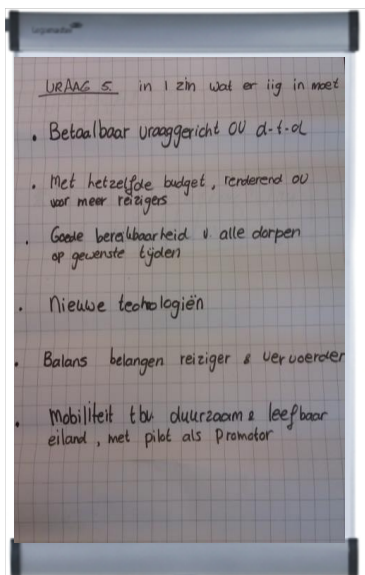 legamaster
VRAAG 5. in 1 zin wat er iig in moet
• Betaalbaar vraaggericht OV d-t-d
• Met hetzelfde budget, renderend OV
voor meer reizigers
• Goede bereikbaarheid v alle dorpen
op gewenste tijden
• Nieuwe technologiën
• Balans belangen reiziger & vervoerder
• Mobiliteit tbv duurzaam & leefbaar
eiland, met pilot als promotor